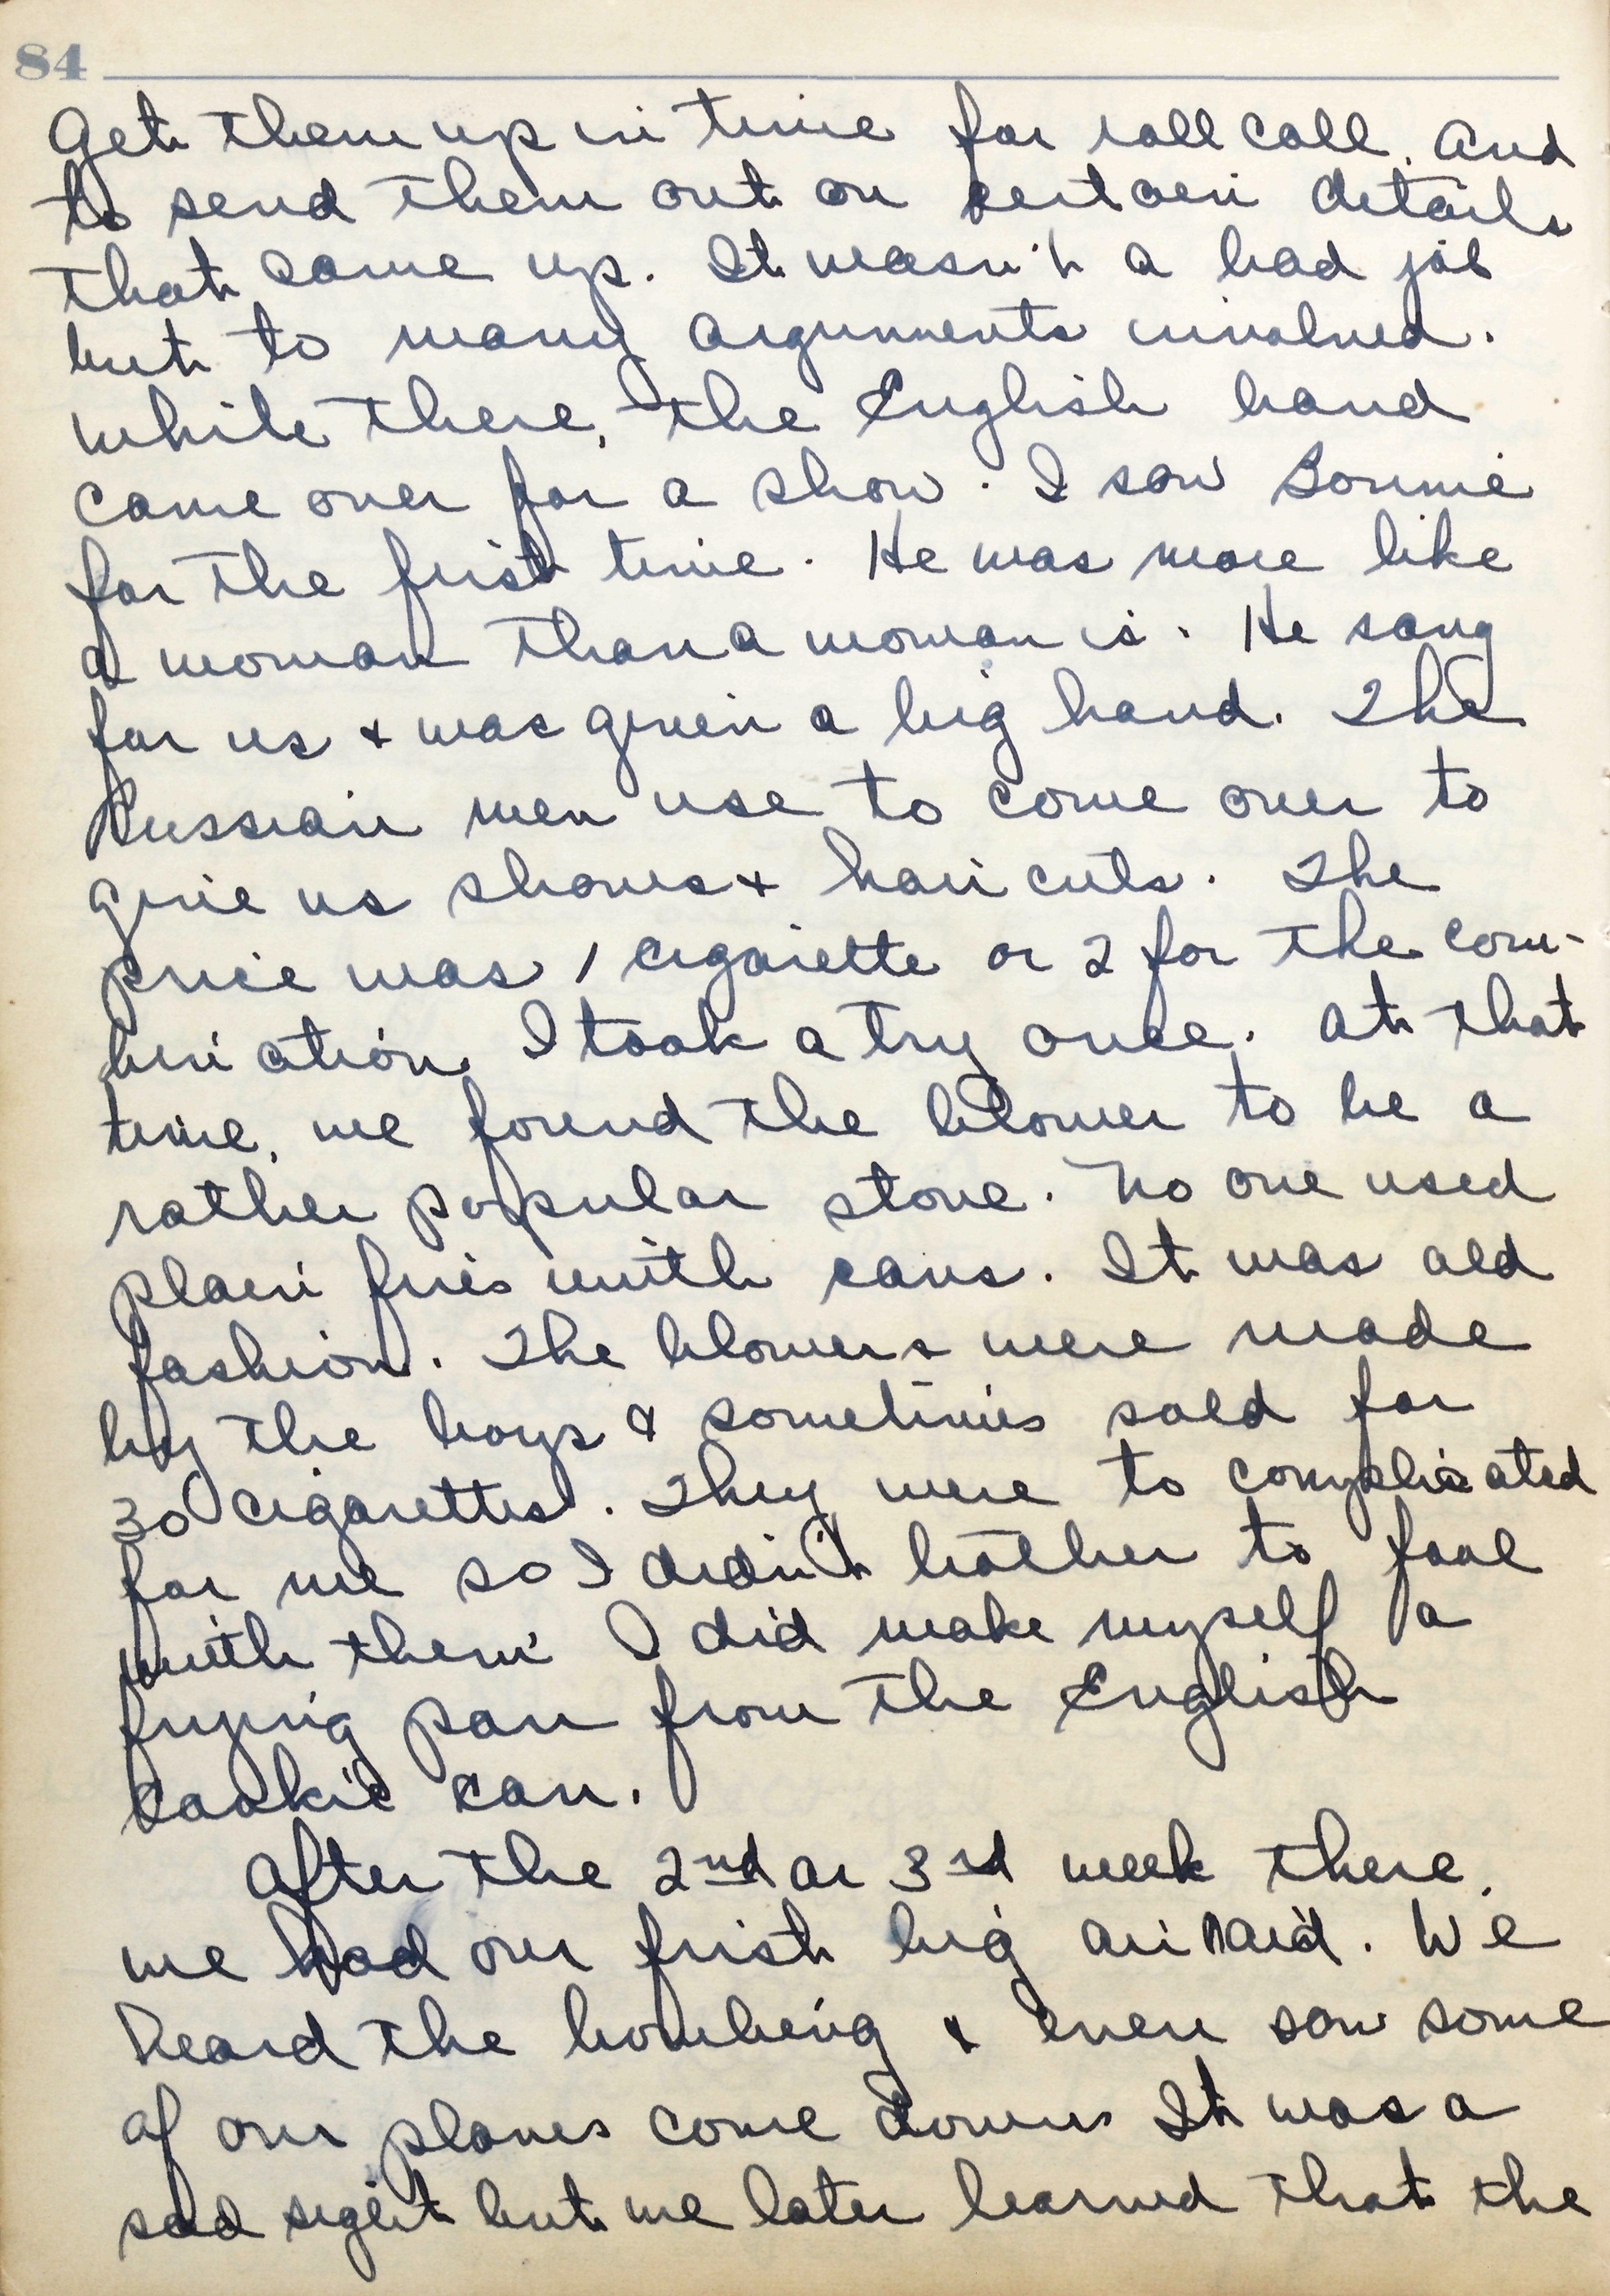 84
Get them up in time for roll call. And
to send them out on certain details
that came up. It wasn't a bad job
but to many arguments involved.
While there, the English band
came over for a show. I saw Bonnie
for the first time. He was more like
a woman than a woman is. He sang
for us & was given a big hand. The
Russian men use to come over to
give us shaves & hair cuts. The
price was 1 cigarette or 2 for the com-
bination. I took a try once. At that
time, we found the blower to be a
rather popular stove. No one used
plain fires with cans. It was old
fashion. The blowers were made
by the boys & sometimes sold for
30 cigarettes. They were to complicated
for me so I didn't bother to fool
with them. I did make myself a
frying pan from the English
cookie can.
After the 2nd or 3rd week there,
we had our first big air raid. We
heard the bombing & even saw some
of our planes come down. It was a
sad sight but we later learned that the